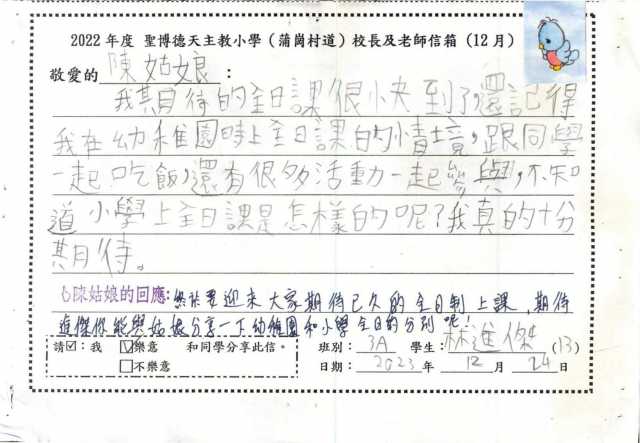 2022 年度 聖博德天主教小學（蒲崗村道）校長及老師信箱（12月）
敬愛的 陳姑娘：
我期待的全日課很快到了，還記得
我在幼稚園時上全日課的情境，跟同學
一起吃飯，還有很多活動一起參與，不知
道小學上全日課是怎樣的呢？我真的十分
期待。
陳姑娘的回應：終於要迎來大家期待已久的全日制上課，期待
進傑你能與姑娘分享一下幼稚園和小學全日的分別呢！
請☑：我 ☑樂意 和同學分享此信。 班別：3A 學生：林進傑（13）
□不樂意 日期：2023年12月24日